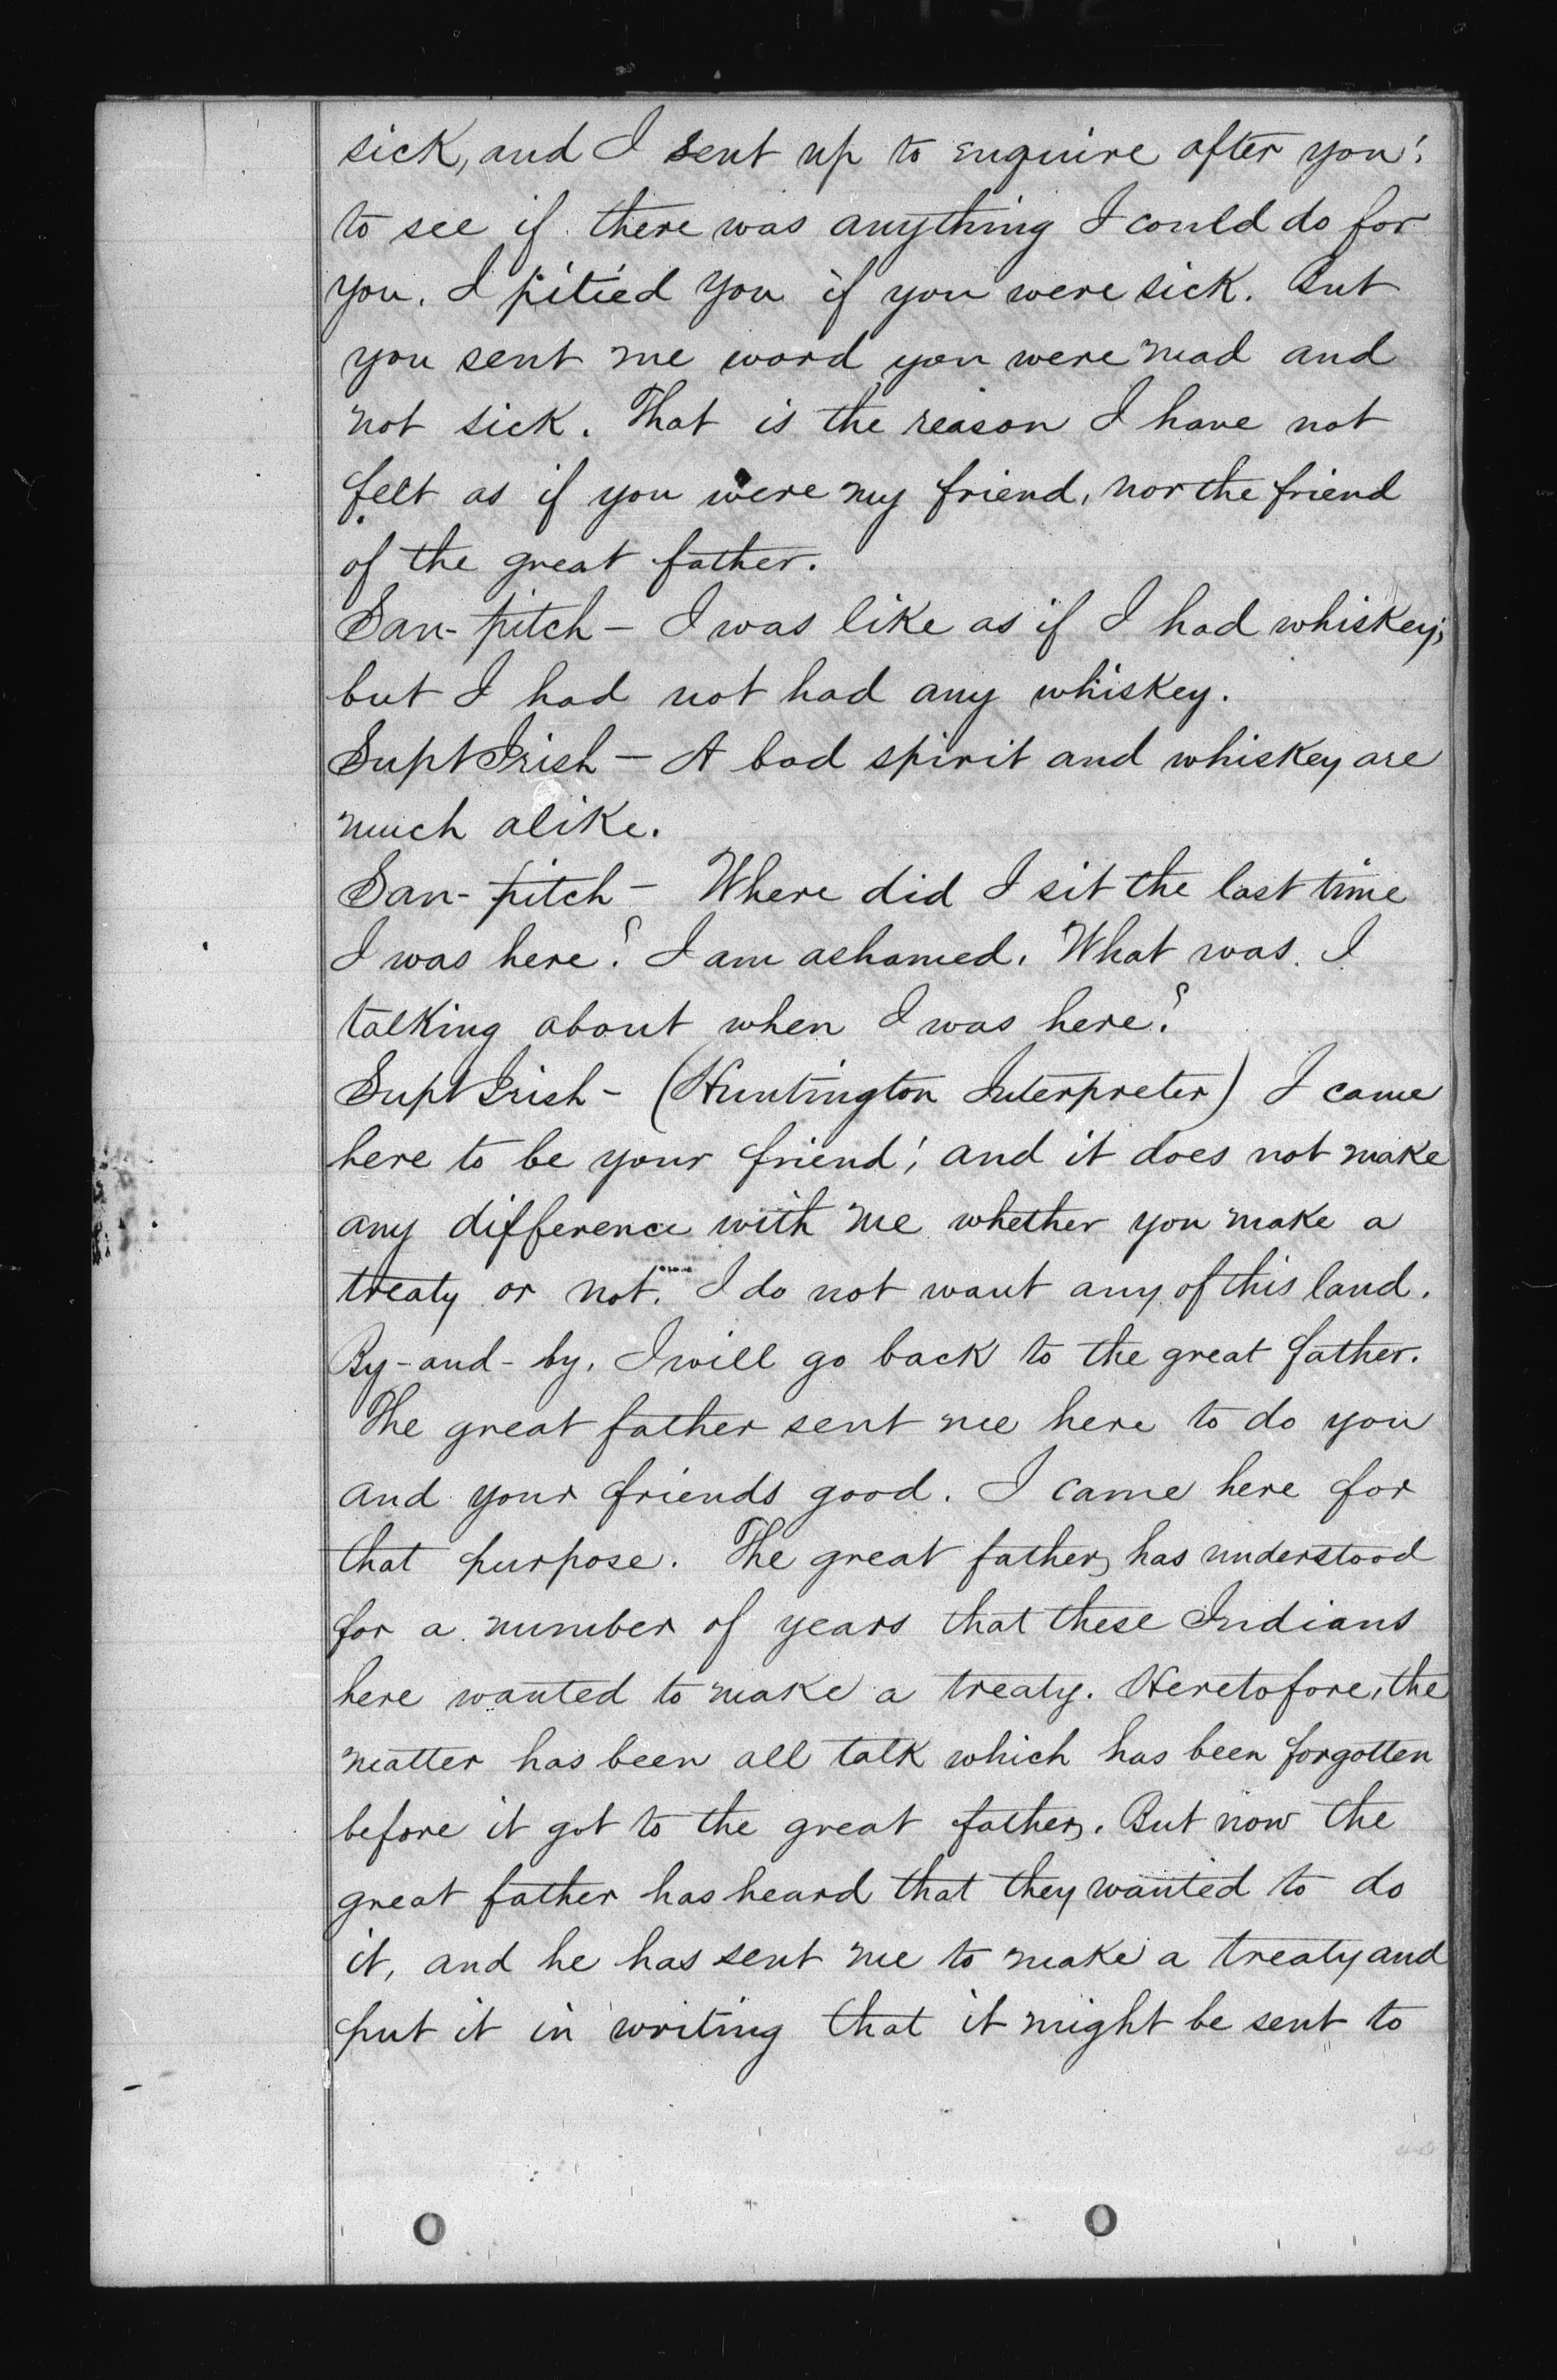 sick, and I sent up to enquire after you;
to see if there was anything I could do for
you. I pitied you if you were sick. But
you sent me word you were mad and
not sick. That is the reason I have not
felt as if you were my friend, nor the friend
of the great father.
San-pitch — I was like as if I had whiskey;
but I had not had any whiskey.
Supt Irish — A bad spirit and whiskey are
much alike.
San-pitch — Where did I sit the last time
I was here? I am ashamed. What was I
talking about when I was here?
Supt Irish — (Huntington Interpreter) I came
here to be your friend; and it does not make
any difference with me whether you make a
treaty or not. I do not want any of this land.
By-and-by, I will go back to the great father.
The great father sent me here to do you
and your friends good. I came here for
that purpose. The great father, has understood
for a number of years that these Indians
here wanted to make a treaty. Heretofore, the
matter has been all talk which has been forgotten
before it got to the great father. But now the
great father has heard that they wanted to do
it, and he has sent me to make a treaty and
put it in writing that it might be sent to